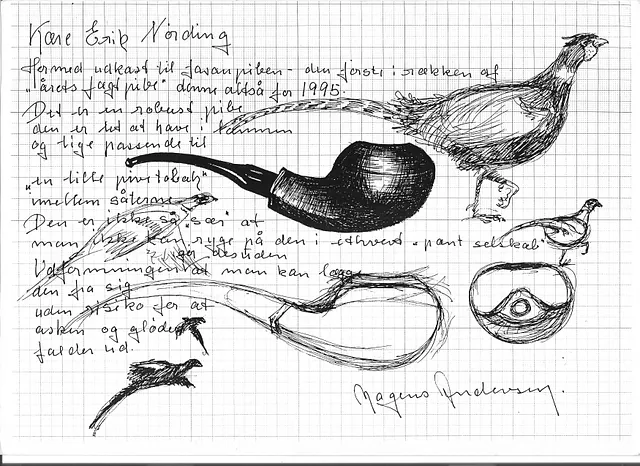 Kære Erik Nørding
Hermed udkast til fasanpiben - den første i rækken af
"årets jagtpibe" denne altså for 1995.
Det er en robust pibe
den er let at have i tanden
og lige passende til
"en lille pine tobak"
imellem såterne
Den er ikke så "sær" at
man ikke kan ryge på den i ethvert "pænt selskab"
og desuden
Udformningen at man kan lægge
den fra sig
uden risiko for at
asken og gløder
falder ud.
Mogens Andersen.